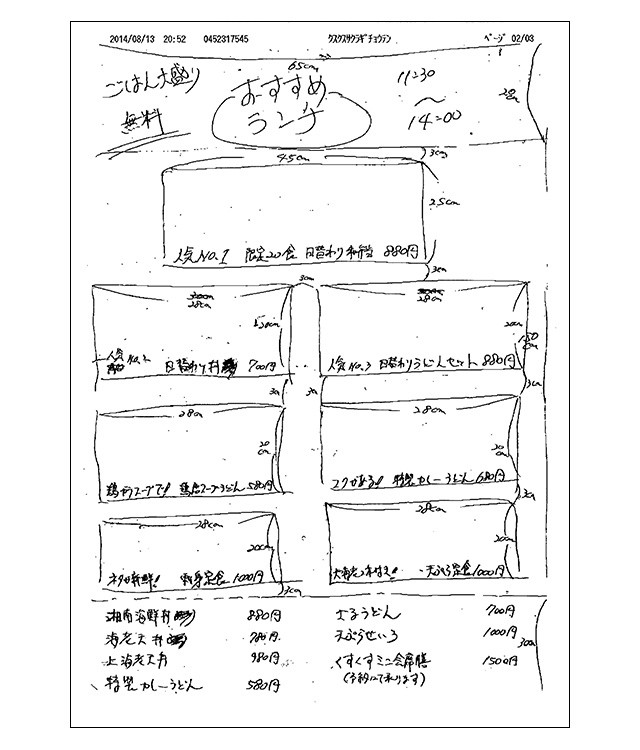 2014/08/13 20:52 0452317545 クスクスサクラギチョウテン ページ 02/03
65cm
ごはん大盛り
無料
おすすめ
ランチ
11:30
〜
14:00
20cm
3cm
45cm
25cm
人気NO.1 限定20食 日替わり 880円
3cm
3cm
28cm
20cm
人気NO.2 日替わり丼 700円
28cm
20cm
人気NO.3 日替わりうどんセット 880円
3cm
3cm
3cm
28cm
20cm
鶏ガラスープで!! 鶏塩スープうどん 580円
28cm
20cm
コクがある!! 特製カレーうどん 680円
3cm
28cm
20cm
ネタが新鮮! 刺身定食 1000円
28cm
20cm
天ぷら定食 1000円
3cm
湘南海鮮丼 880円
海老天丼 780円
上海老天丼 980円
特製カレーうどん 580円
ざるうどん 700円
天ぷらせいろ 1000円
くすくすミニ会席膳 1500円
(予約にて承ります)
30cm